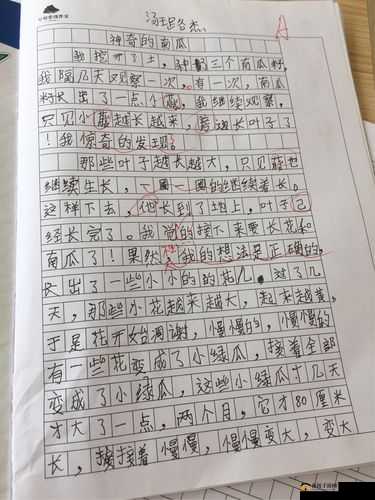 神奇的南瓜
我挖开了土，种了三个南瓜籽，
我隔几天又观察一次。有一次，南瓜
籽长出了一点小，我继续观察，
只见小越长越来，旁边长叶子了
！我惊奇的发现。
那些叶子越长越大，只见藤也
继续生长，一圈一圈的继续着长。
这样下去，他长到了地上，叶子已
经长完了。我觉的接下来要长花和
南瓜了！果然，我的想法是正确的，
长出了一些小小的的花儿。过了几
天，那些小花越来越大，起来越美，
于是花开始凋谢，慢慢的，慢慢的
有一些花变成了小绿瓜，接着全部
变成了小绿瓜，这些小绿瓜才几天
才大了一点，两个月，它才80厘米
长，接着慢慢，慢慢变大，变大